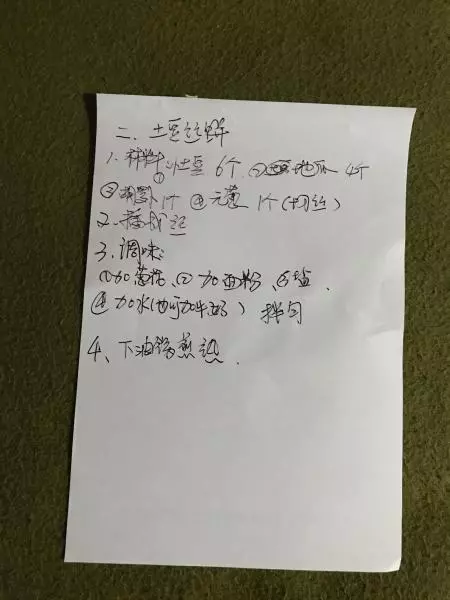 二、土豆丝饼
1、材料 ①土豆 6个 ② 地瓜 4个
③胡萝卜1个 ④元葱 1个(切丝)
2、擦成丝
3、调味:
①加葱花、②加面粉、③盐、
④加水(也可加牛奶) 拌匀
4、下油锅煎